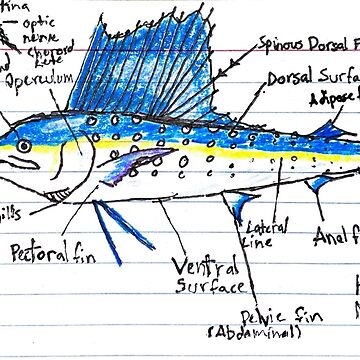 optic
nerve
choroid
Operculum
Spinous Dorsal F
Dorsal Surfa
Adipose
gills
Pectoral fin
Ventral
Surface
Lateral
Line
Anal f
Pelvic fin
(Abdominal)